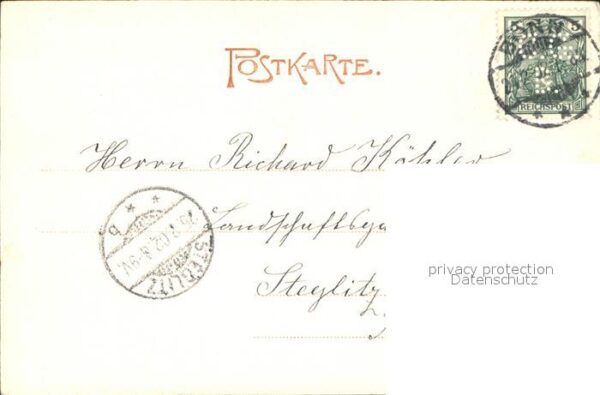 POSTKARTE.
BONN
REICHSPOST
Herrn Richard Köhler
Landschaftsg
privacy protection
Datenschutz
Steglitz
STEGLITZ